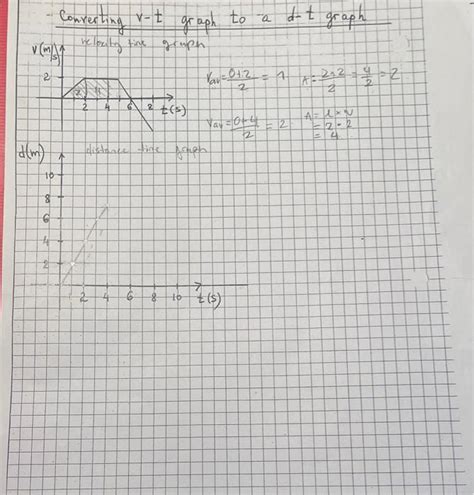 - Converting v-t graph to a d-t graph
v(m/s) velocity time graph
2
2 4
2 4 6 8 t(s)
Vav = 0+2/2 = 1 A = 2×2/2 = 4/2 = 2
Vav = 0+4/2 = 2 A = l × w
= 2 × 2
= 4
d(m) distance time graph
10
8
6
4
2
2 4 6 8 10 t(s)